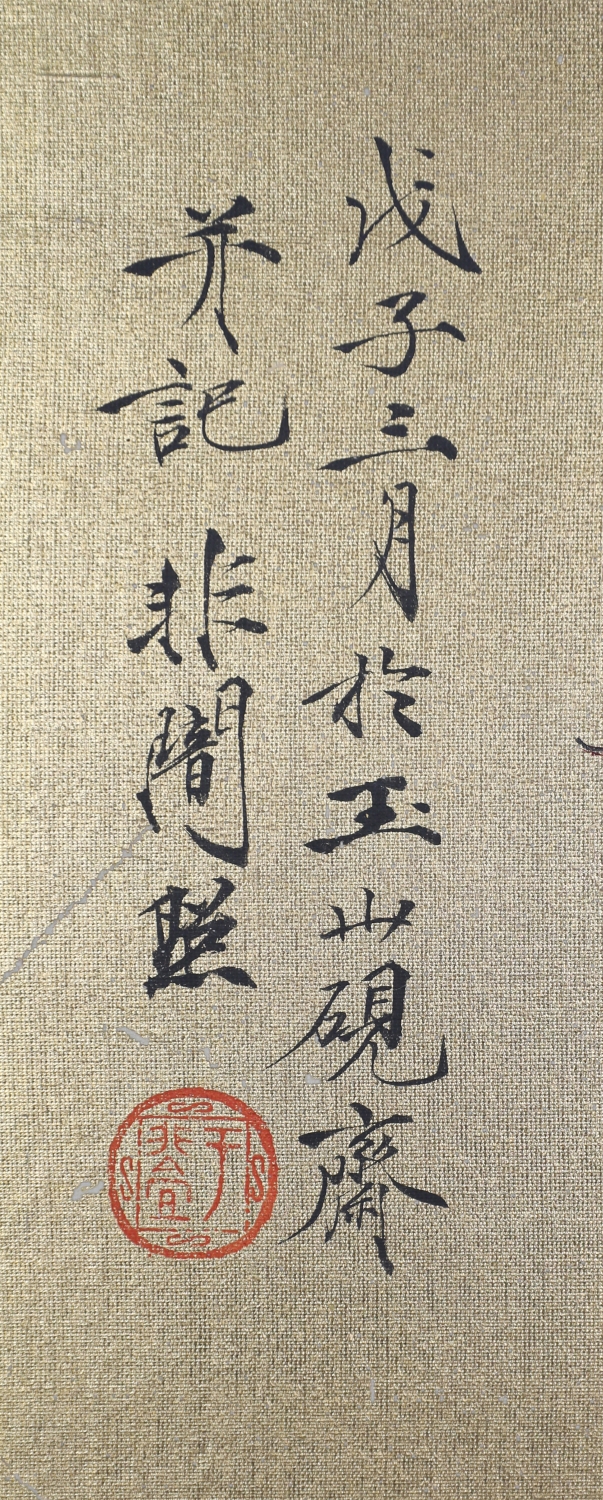 戊子三月於玉山硯齋
并記 非闇照
于非厂